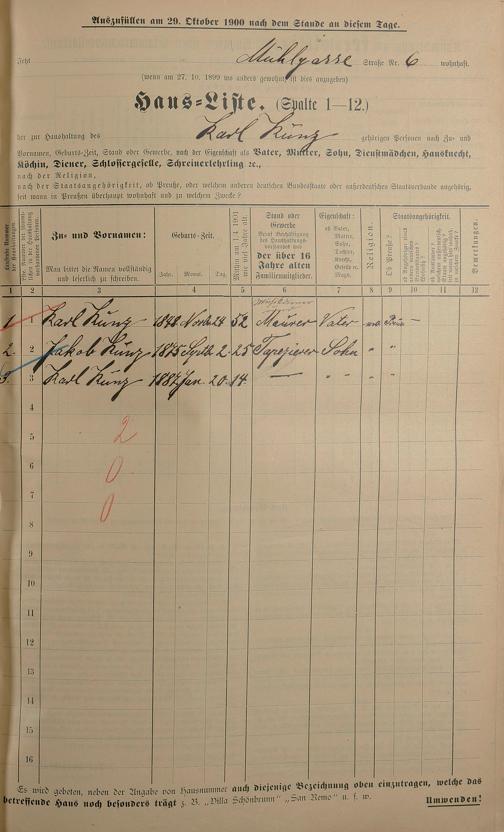 Auszufüllen am 29. Oktober 1900 nach dem Stande an diesem Tage.
Jetzt Mühlgasse Straße Nr. 6 wohnhaft.
(wenn am 27. 10. 1899 wo anders gewohnt ist dies anzugeben)
Haus-Liste. (Spalte 1—12.)
der zur Haushaltung des Karl Kunz gehörigen Personen nach Zu- und
Vornamen, Geburts-Zeit, Stand oder Gewerbe, nach der Eigenschaft als Vater, Mutter, Sohn, Dienstmädchen, Hausknecht,
Köchin, Diener, Schlossergeselle, Schreinerlehrling ꝛc.,
nach der Religion,
nach der Staatsangehörigkeit, ob Preuße, oder welchem anderen deutschen Bundesstaate oder außerdeutschen Staatsverbande angehörig,
seit wann in Preußen überhaupt wohnhaft und zu welchem Zwecke?
Zu- und Vornamen:
Man bittet die Namen vollständig
und leserlich zu schreiben.
Geburts-Zeit.
Jahr. Monat. Tag.
Mithin am 1. 1. 1901
wie viel Jahre alt.
Stand oder
Gewerbe
der über 16
Jahre alten
Familienmitglieder.
Eigenschaft:
ob Vater,
Mutter,
Sohn,
Tochter,
Magd.
Religion.
Staatsangehörigkeit.
Ob Preuße?
Bemerkungen.
1 2 3 4 5 6 7 8 9 10 11 12
1 1 Karl Kunz 1848 24 52 Maurer Vater
2. 2 Jakob Kunz 1875 2. 25 Tapezierer Sohn " "
3. 3 Karl Kunz 1887 Jan. 20. 14 — " " "
4
5 2
6 0
7 0
8
9
10
11
12
13
14
15
16
Es wird gebeten, neben der Angabe von Hausnummer auch diejenige Bezeichnung oben einzutragen, welche das
betreffende Haus noch besonders trägt z. B. „Villa Schönbrunn" „San Remo" u. s. w.
Umwenden!